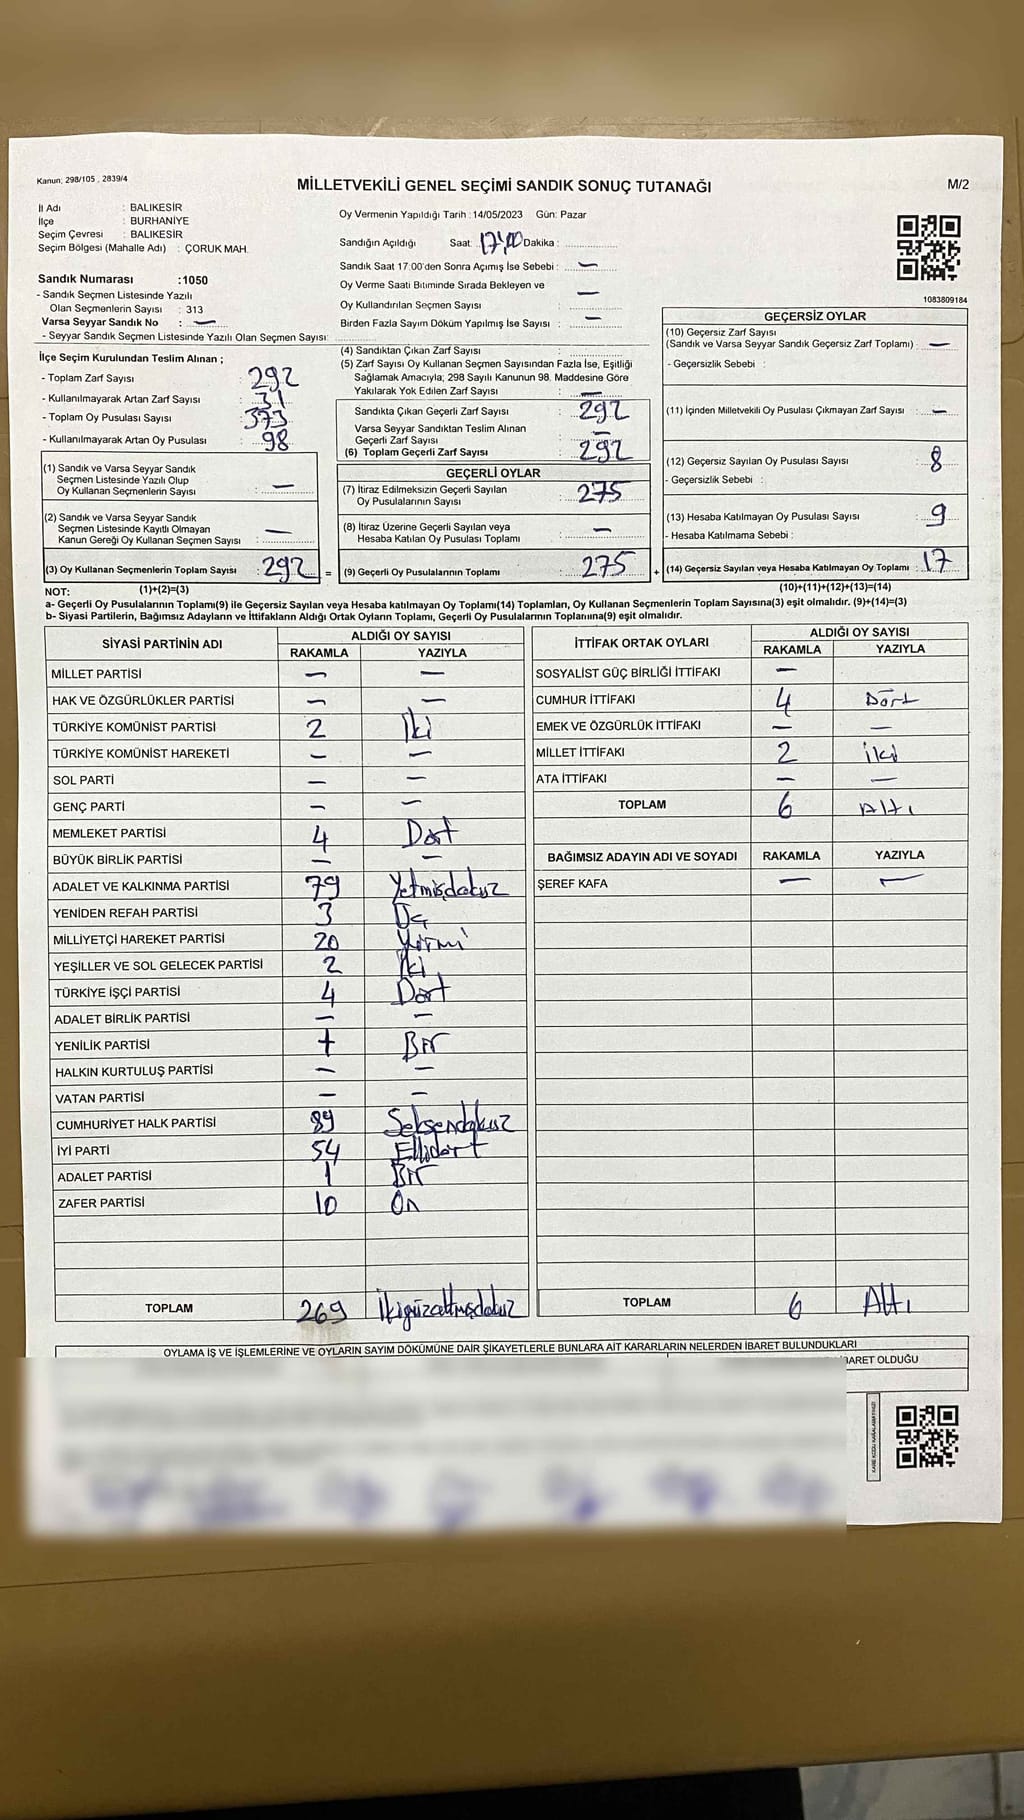 Kanun; 298/105 , 2839/4
MİLLETVEKİLİ GENEL SEÇİMİ SANDIK SONUÇ TUTANAĞI
M/2
İl Adı : BALIKESİR
İlçe : BURHANİYE
Seçim Çevresi : BALIKESİR
Seçim Bölgesi (Mahalle Adı) : ÇORUK MAH.
Sandık Numarası :1050
- Sandık Seçmen Listesinde Yazılı
Olan Seçmenlerin Sayısı : 313
Varsa Seyyar Sandık No : —
- Seyyar Sandık Seçmen Listesinde Yazılı Olan Seçmen Sayısı:
Oy Vermenin Yapıldığı Tarih : 14/05/2023 Gün: Pazar
Sandığın Açıldığı Saat: 17:00 Dakika :
Sandık Saat 17:00'den Sonra Açımış İse Sebebi : —
Oy Verme Saati Bitiminde Sırada Bekleyen ve
Oy Kullandırılan Seçmen Sayısı : —
Birden Fazla Sayım Döküm Yapılmış İse Sayısı : —
1083809184
İlçe Seçim Kurulundan Teslim Alınan ;
- Toplam Zarf Sayısı : 292
- Kullanılmayarak Artan Zarf Sayısı : 31
- Toplam Oy Pusulası Sayısı : 373
- Kullanılmayarak Artan Oy Pusulası : 98
(1) Sandık ve Varsa Seyyar Sandık
Seçmen Listesinde Yazılı Olup
Oy Kullanan Seçmenlerin Sayısı : —
(2) Sandık ve Varsa Seyyar Sandık
Seçmen Listesinde Kayıtlı Olmayan
Kanun Gereği Oy Kullanan Seçmen Sayısı : —
(3) Oy Kullanan Seçmenlerin Toplam Sayısı : 292 =
(4) Sandıktan Çıkan Zarf Sayısı :
(5) Zarf Sayısı Oy Kullanan Seçmen Sayısından Fazla İse, Eşitliği
Sağlamak Amacıyla; 298 Sayılı Kanunun 98. Maddesine Göre
Yakılarak Yok Edilen Zarf Sayısı : —
Sandıkta Çıkan Geçerli Zarf Sayısı : 292
Varsa Seyyar Sandıktan Teslim Alınan
Geçerli Zarf Sayısı : —
(6) Toplam Geçerli Zarf Sayısı : 292
GEÇERLİ OYLAR
(7) İtiraz Edilmeksizin Geçerli Sayılan
Oy Pusulalarının Sayısı : 275
(8) İtiraz Üzerine Geçerli Sayılan veya
Hesaba Katılan Oy Pusulası Toplamı : —
(9) Geçerli Oy Pusulalarının Toplamı : 275 +
GEÇERSİZ OYLAR
(10) Geçersiz Zarf Sayısı
(Sandık ve Varsa Seyyar Sandık Geçersiz Zarf Toplamı) : —
- Geçersizlik Sebebi :
(11) İçinden Milletvekili Oy Pusulası Çıkmayan Zarf Sayısı : —
(12) Geçersiz Sayılan Oy Pusulası Sayısı : 8
- Geçersizlik Sebebi :
(13) Hesaba Katılmayan Oy Pusulası Sayısı : 9
- Hesaba Katılmama Sebebi :
(14) Geçersiz Sayılan veya Hesaba Katılmayan Oy Toplamı : 17
NOT: (1)+(2)=(3)
(10)+(11)+(12)+(13)=(14)
a- Geçerli Oy Pusulalarının Toplamı(9) ile Geçersiz Sayılan veya Hesaba katılmayan Oy Toplamı(14) Toplamları, Oy Kullanan Seçmenlerin Toplam Sayısına(3) eşit olmalıdır. (9)+(14)=(3)
b- Siyasi Partilerin, Bağımsız Adayların ve İttifakların Aldığı Ortak Oyların Toplamı, Geçerli Oy Pusulalarının Toplanına(9) eşit olmalıdır.
SİYASİ PARTİNİN ADI ALDIĞI OY SAYISI
RAKAMLA YAZIYLA
MİLLET PARTİSİ — —
HAK VE ÖZGÜRLÜKLER PARTİSİ — —
TÜRKİYE KOMÜNİST PARTİSİ 2 İki
TÜRKİYE KOMÜNİST HAREKETİ — —
SOL PARTİ — —
GENÇ PARTİ — —
MEMLEKET PARTİSİ 4 Dört
BÜYÜK BİRLİK PARTİSİ — —
ADALET VE KALKINMA PARTİSİ 79 Yetmişdokuz
YENİDEN REFAH PARTİSİ 3 Üç
MİLLİYETÇİ HAREKET PARTİSİ 20 Yirmi
YEŞİLLER VE SOL GELECEK PARTİSİ 2 İki
TÜRKİYE İŞÇİ PARTİSİ 4 Dört
ADALET BİRLİK PARTİSİ — —
YENİLİK PARTİSİ 1 Bir
HALKIN KURTULUŞ PARTİSİ — —
VATAN PARTİSİ — —
CUMHURİYET HALK PARTİSİ 89 Seksendokuz
İYİ PARTİ 54 Ellidört
ADALET PARTİSİ 1 Bir
ZAFER PARTİSİ 10 On
TOPLAM 269 İkiyüzaltmışdokuz
İTTİFAK ORTAK OYLARI ALDIĞI OY SAYISI
RAKAMLA YAZIYLA
SOSYALİST GÜÇ BİRLİĞİ İTTİFAKI —
CUMHUR İTTİFAKI 4 Dört
EMEK VE ÖZGÜRLÜK İTTİFAKI — —
MİLLET İTTİFAKI 2 İki
ATA İTTİFAKI — —
TOPLAM 6 Altı
BAĞIMSIZ ADAYIN ADI VE SOYADI RAKAMLA YAZIYLA
ŞEREF KAFA — —
TOPLAM 6 Altı
OYLAMA İŞ VE İŞLEMLERİNE VE OYLARIN SAYIM DÖKÜMÜNE DAİR ŞİKAYETLERLE BUNLARA AİT KARARLARIN NELERDEN İBARET BULUNDUKLARI
İBARET OLDUĞU